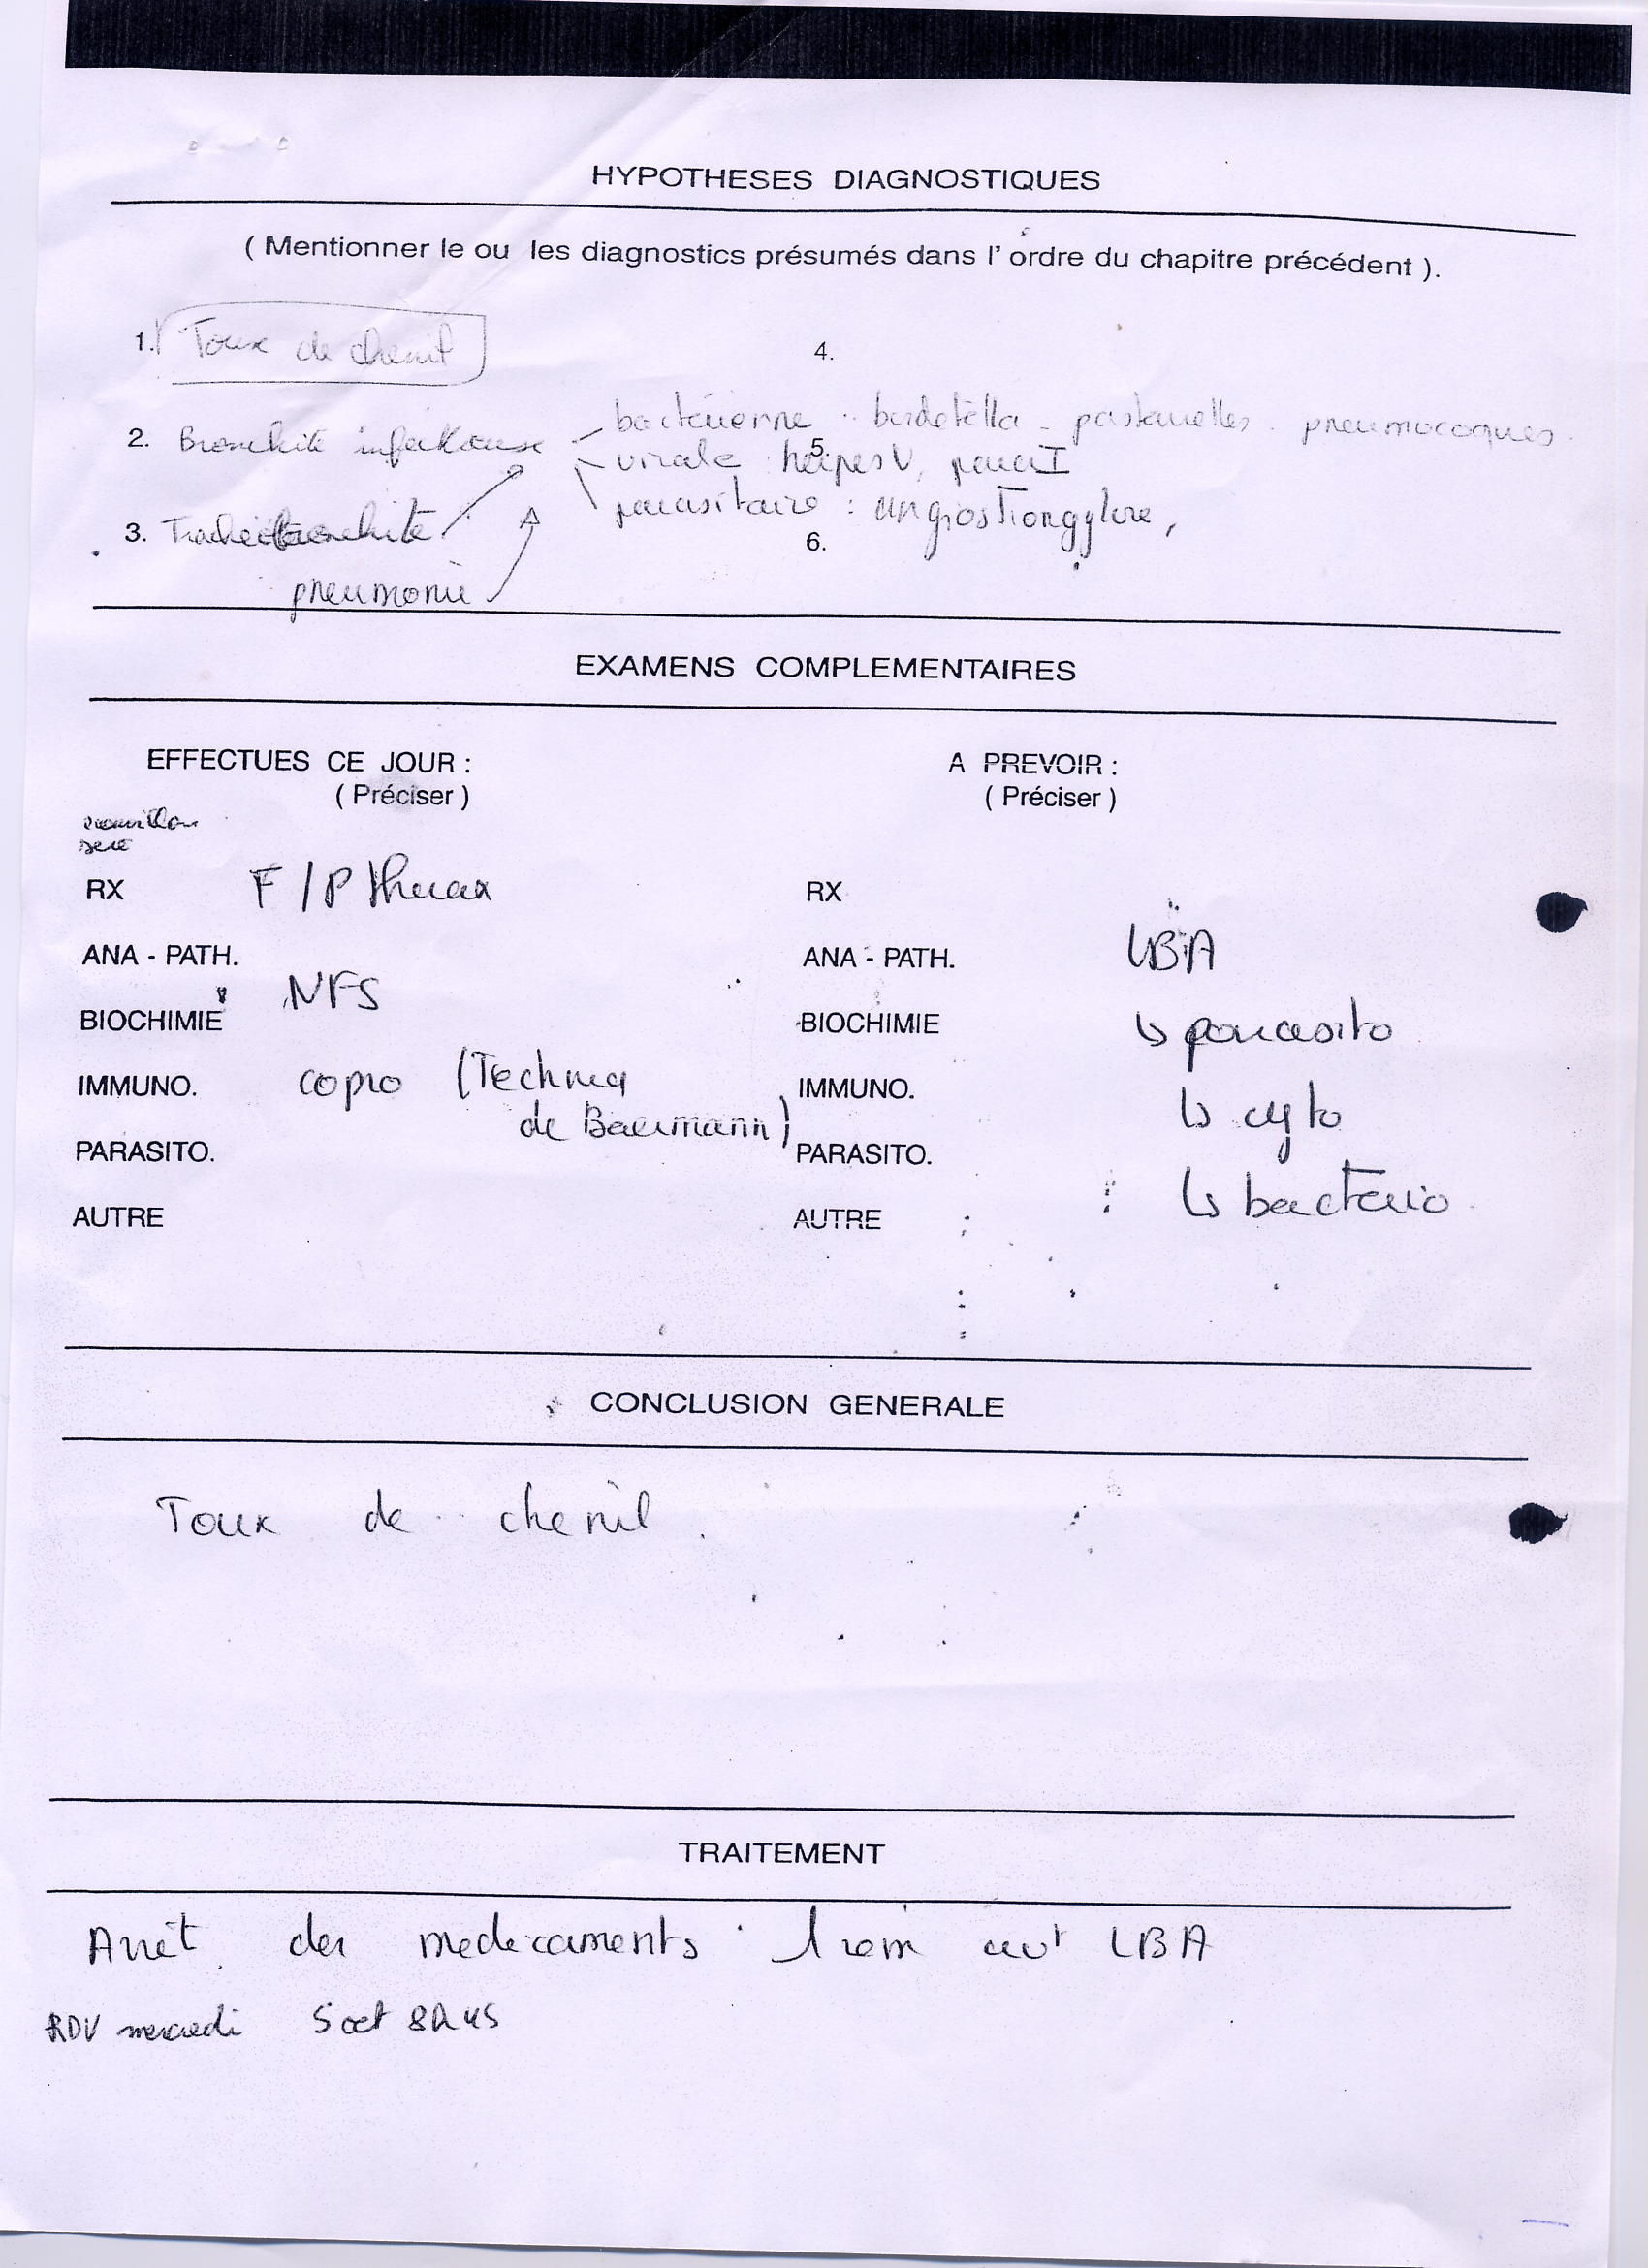 HYPOTHESES DIAGNOSTIQUES
( Mentionner le ou les diagnostics présumés dans l' ordre du chapitre précédent ).
1. Toux de chenil
4.
2. Bronchite infectieuse
bactérienne : bordetella - pasteurelles - pneumocoques.
5.
virale : herpes V, para I
parasitaire : angiostrongylose,
3. Trachéobronchite
6.
pneumonie
EXAMENS COMPLEMENTAIRES
EFFECTUES CE JOUR : A PREVOIR :
( Préciser ) ( Préciser )
RX F / P thorax RX
ANA - PATH. ANA - PATH. LBA
NFS
BIOCHIMIE BIOCHIMIE ↳ parasito
IMMUNO. copro (Techniq IMMUNO. ↳ cyto
de Baermann)
PARASITO. PARASITO.
↳ bacterio.
AUTRE AUTRE
CONCLUSION GENERALE
Toux de chenil.
TRAITEMENT
Arrêt des medicaments 1 sem avt LBA
RDV mercredi 5 oct 8h45